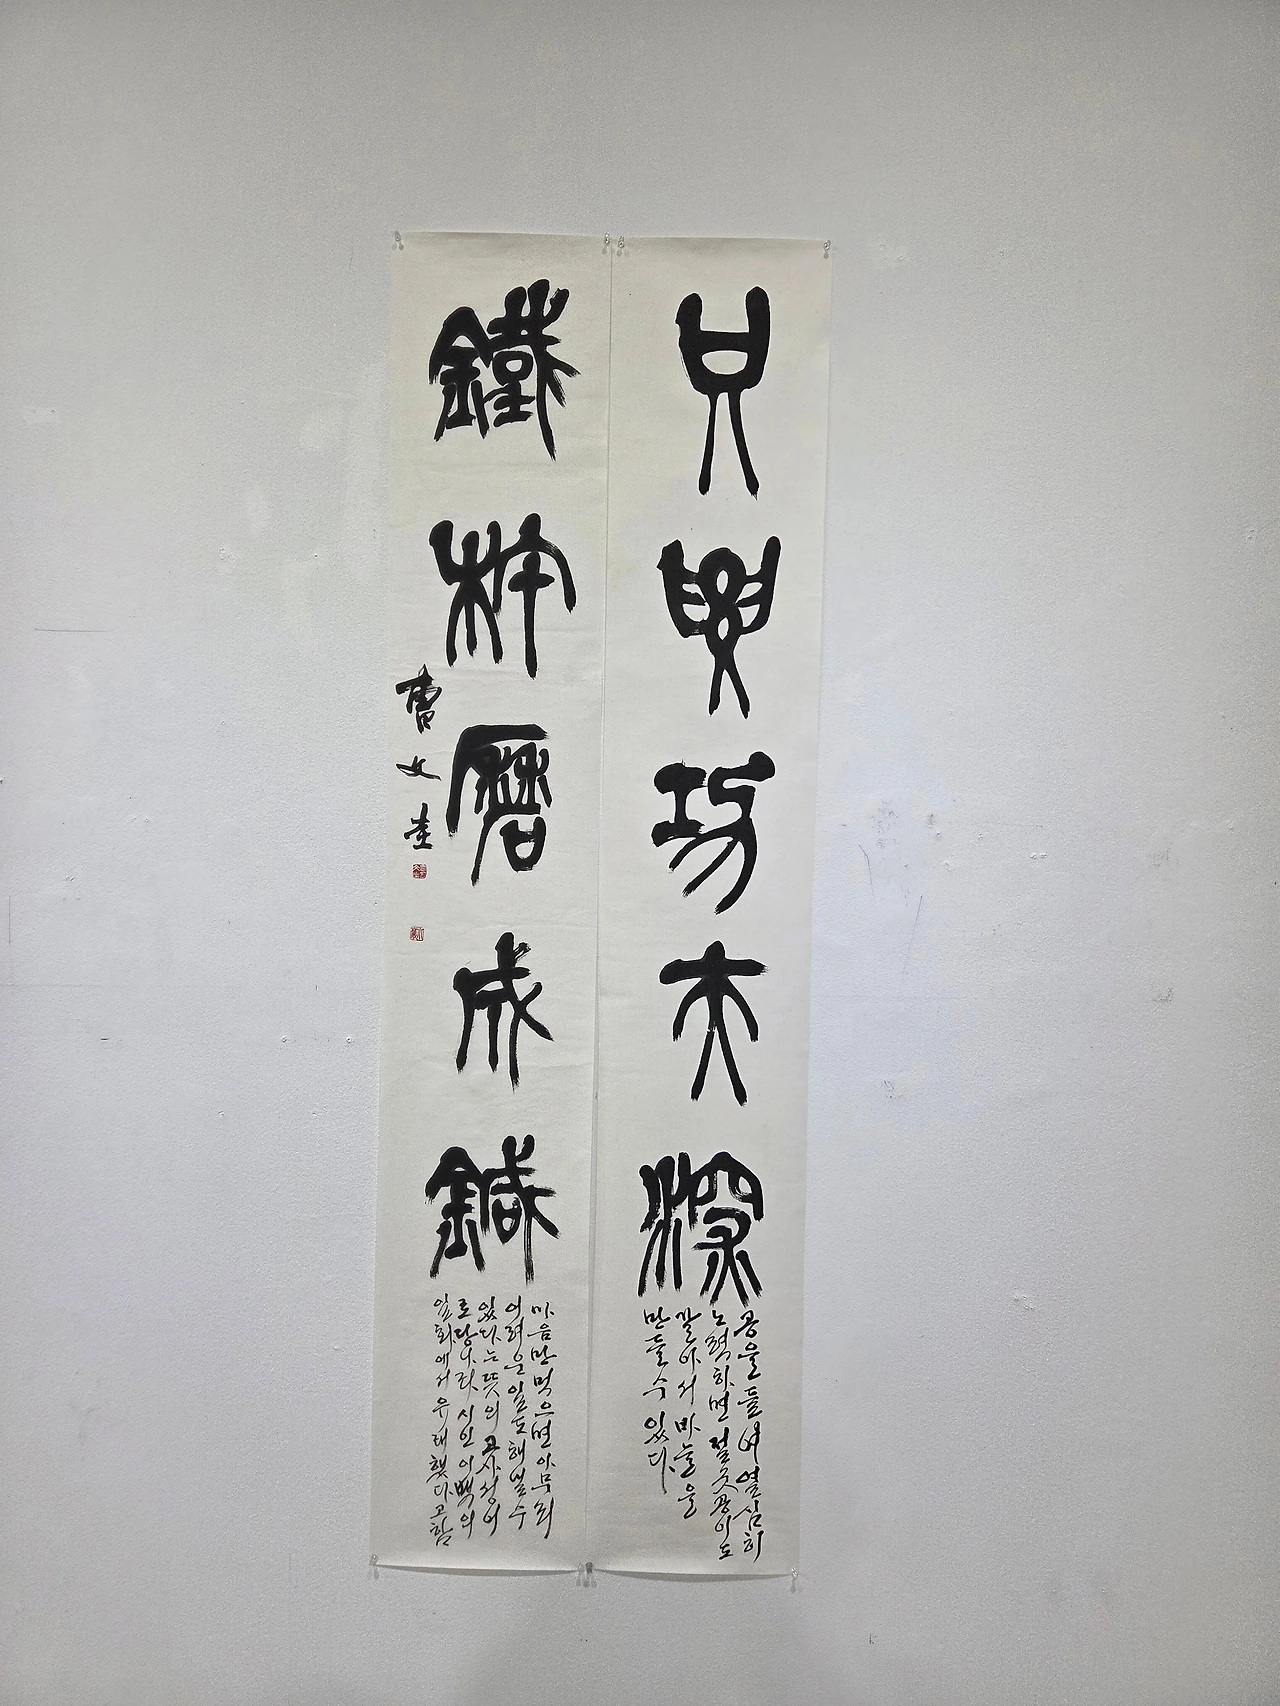 只要功夫深
공을 들여 열심히
노력하면 절굿공이도
갈아서 바늘을
만들 수 있다.
鐵杵磨成鍼
마음만 먹으면 아무리
어려운 일도 해낼 수
있다는 뜻의 고사성어
로 당나라 시인 이백의
일화에서 유래했다고 함
曺文圭